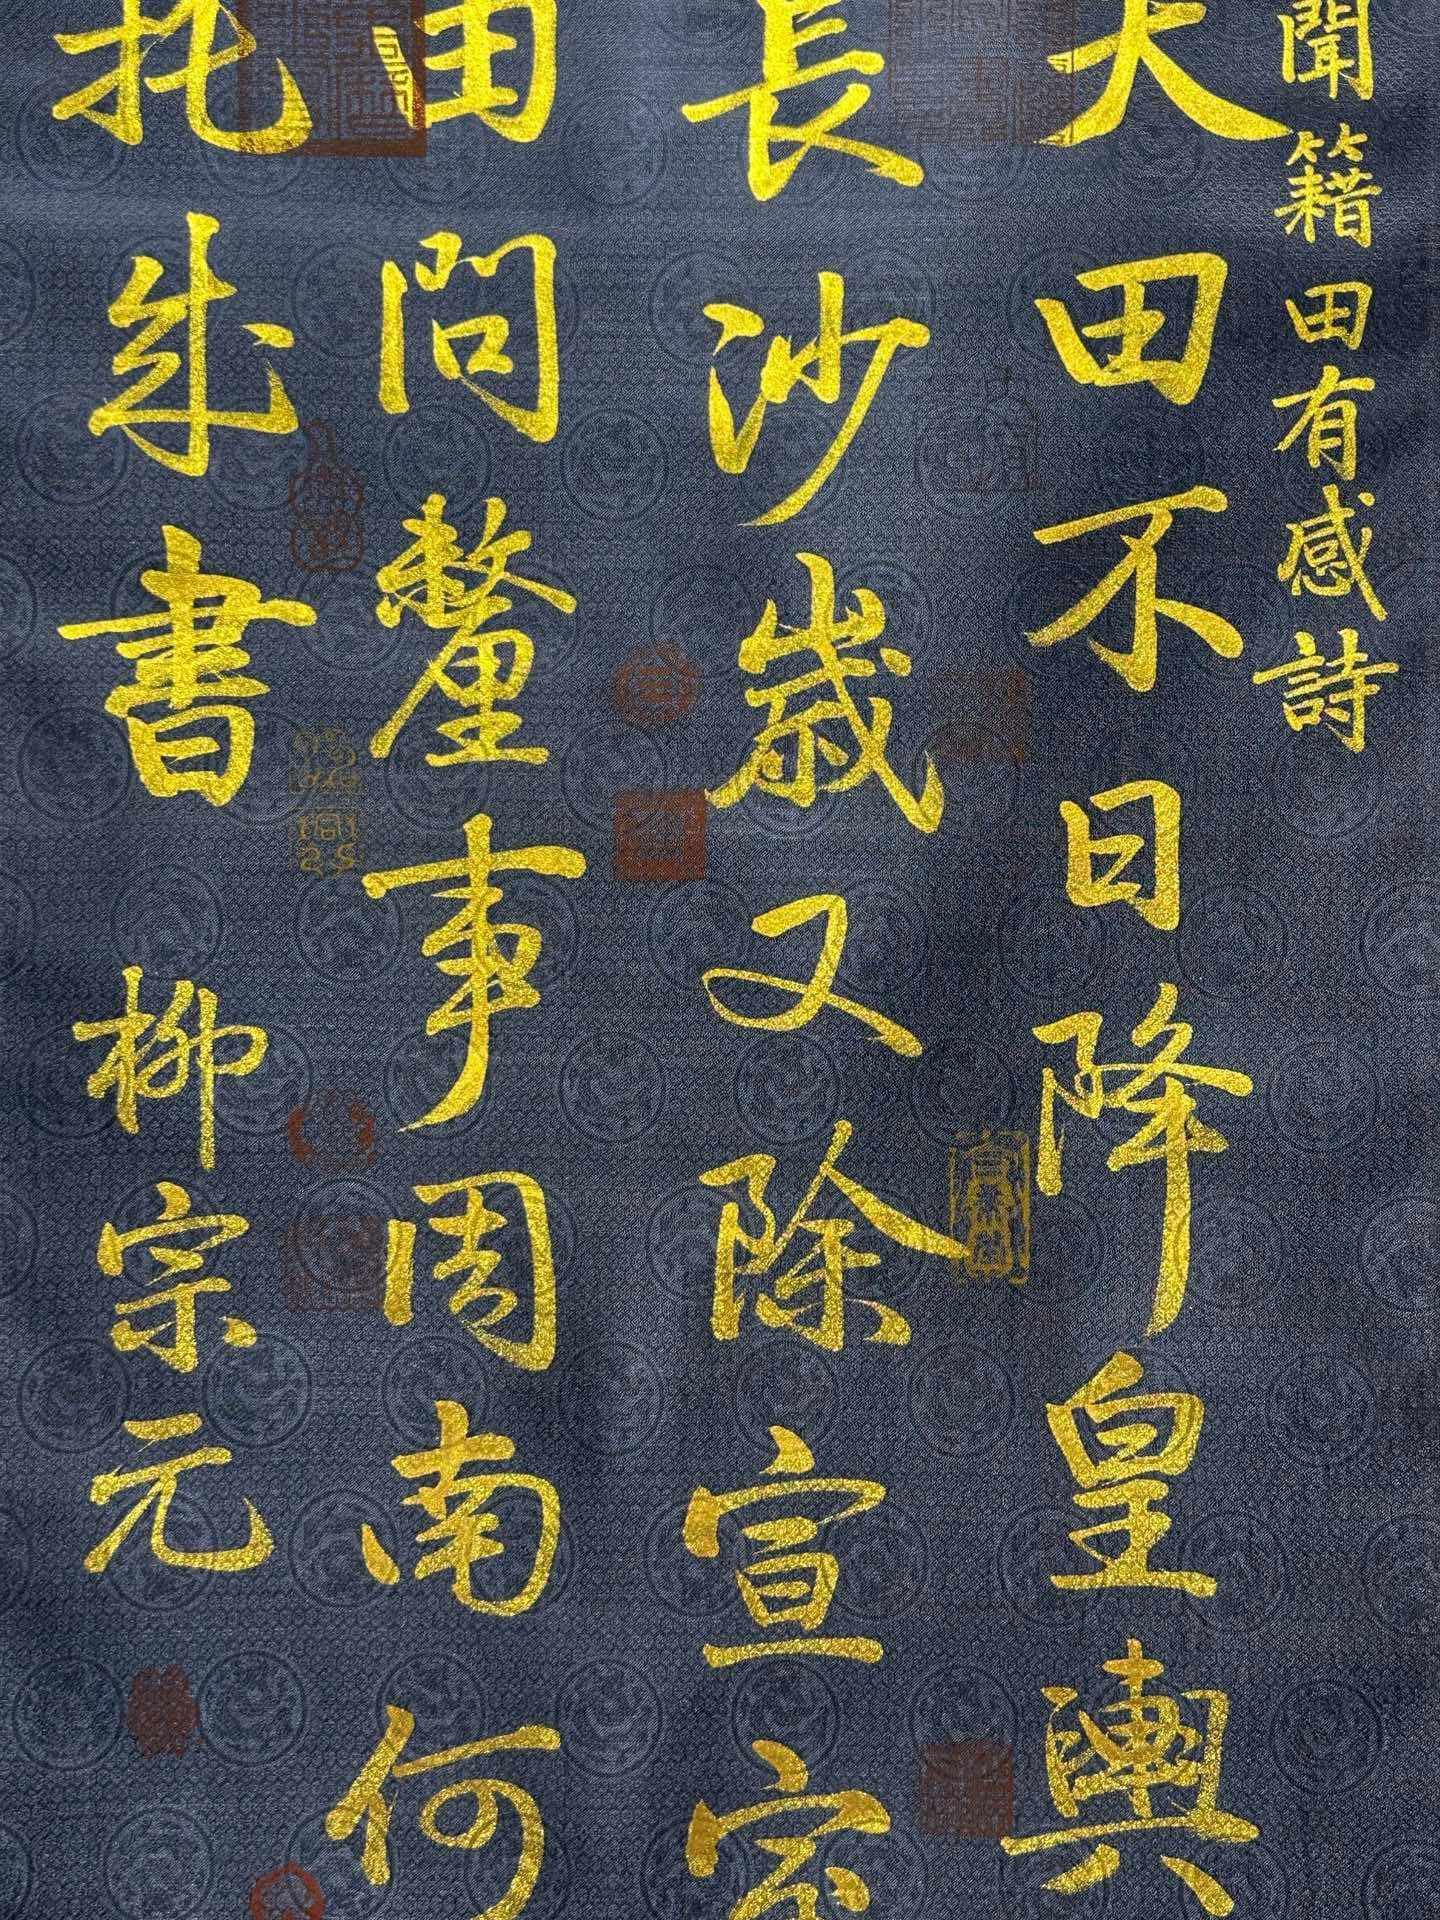 聞籍田有感詩
天田不日降皇輿
長沙歲又除宣室
由問釐事周南何
托成書 柳宗元